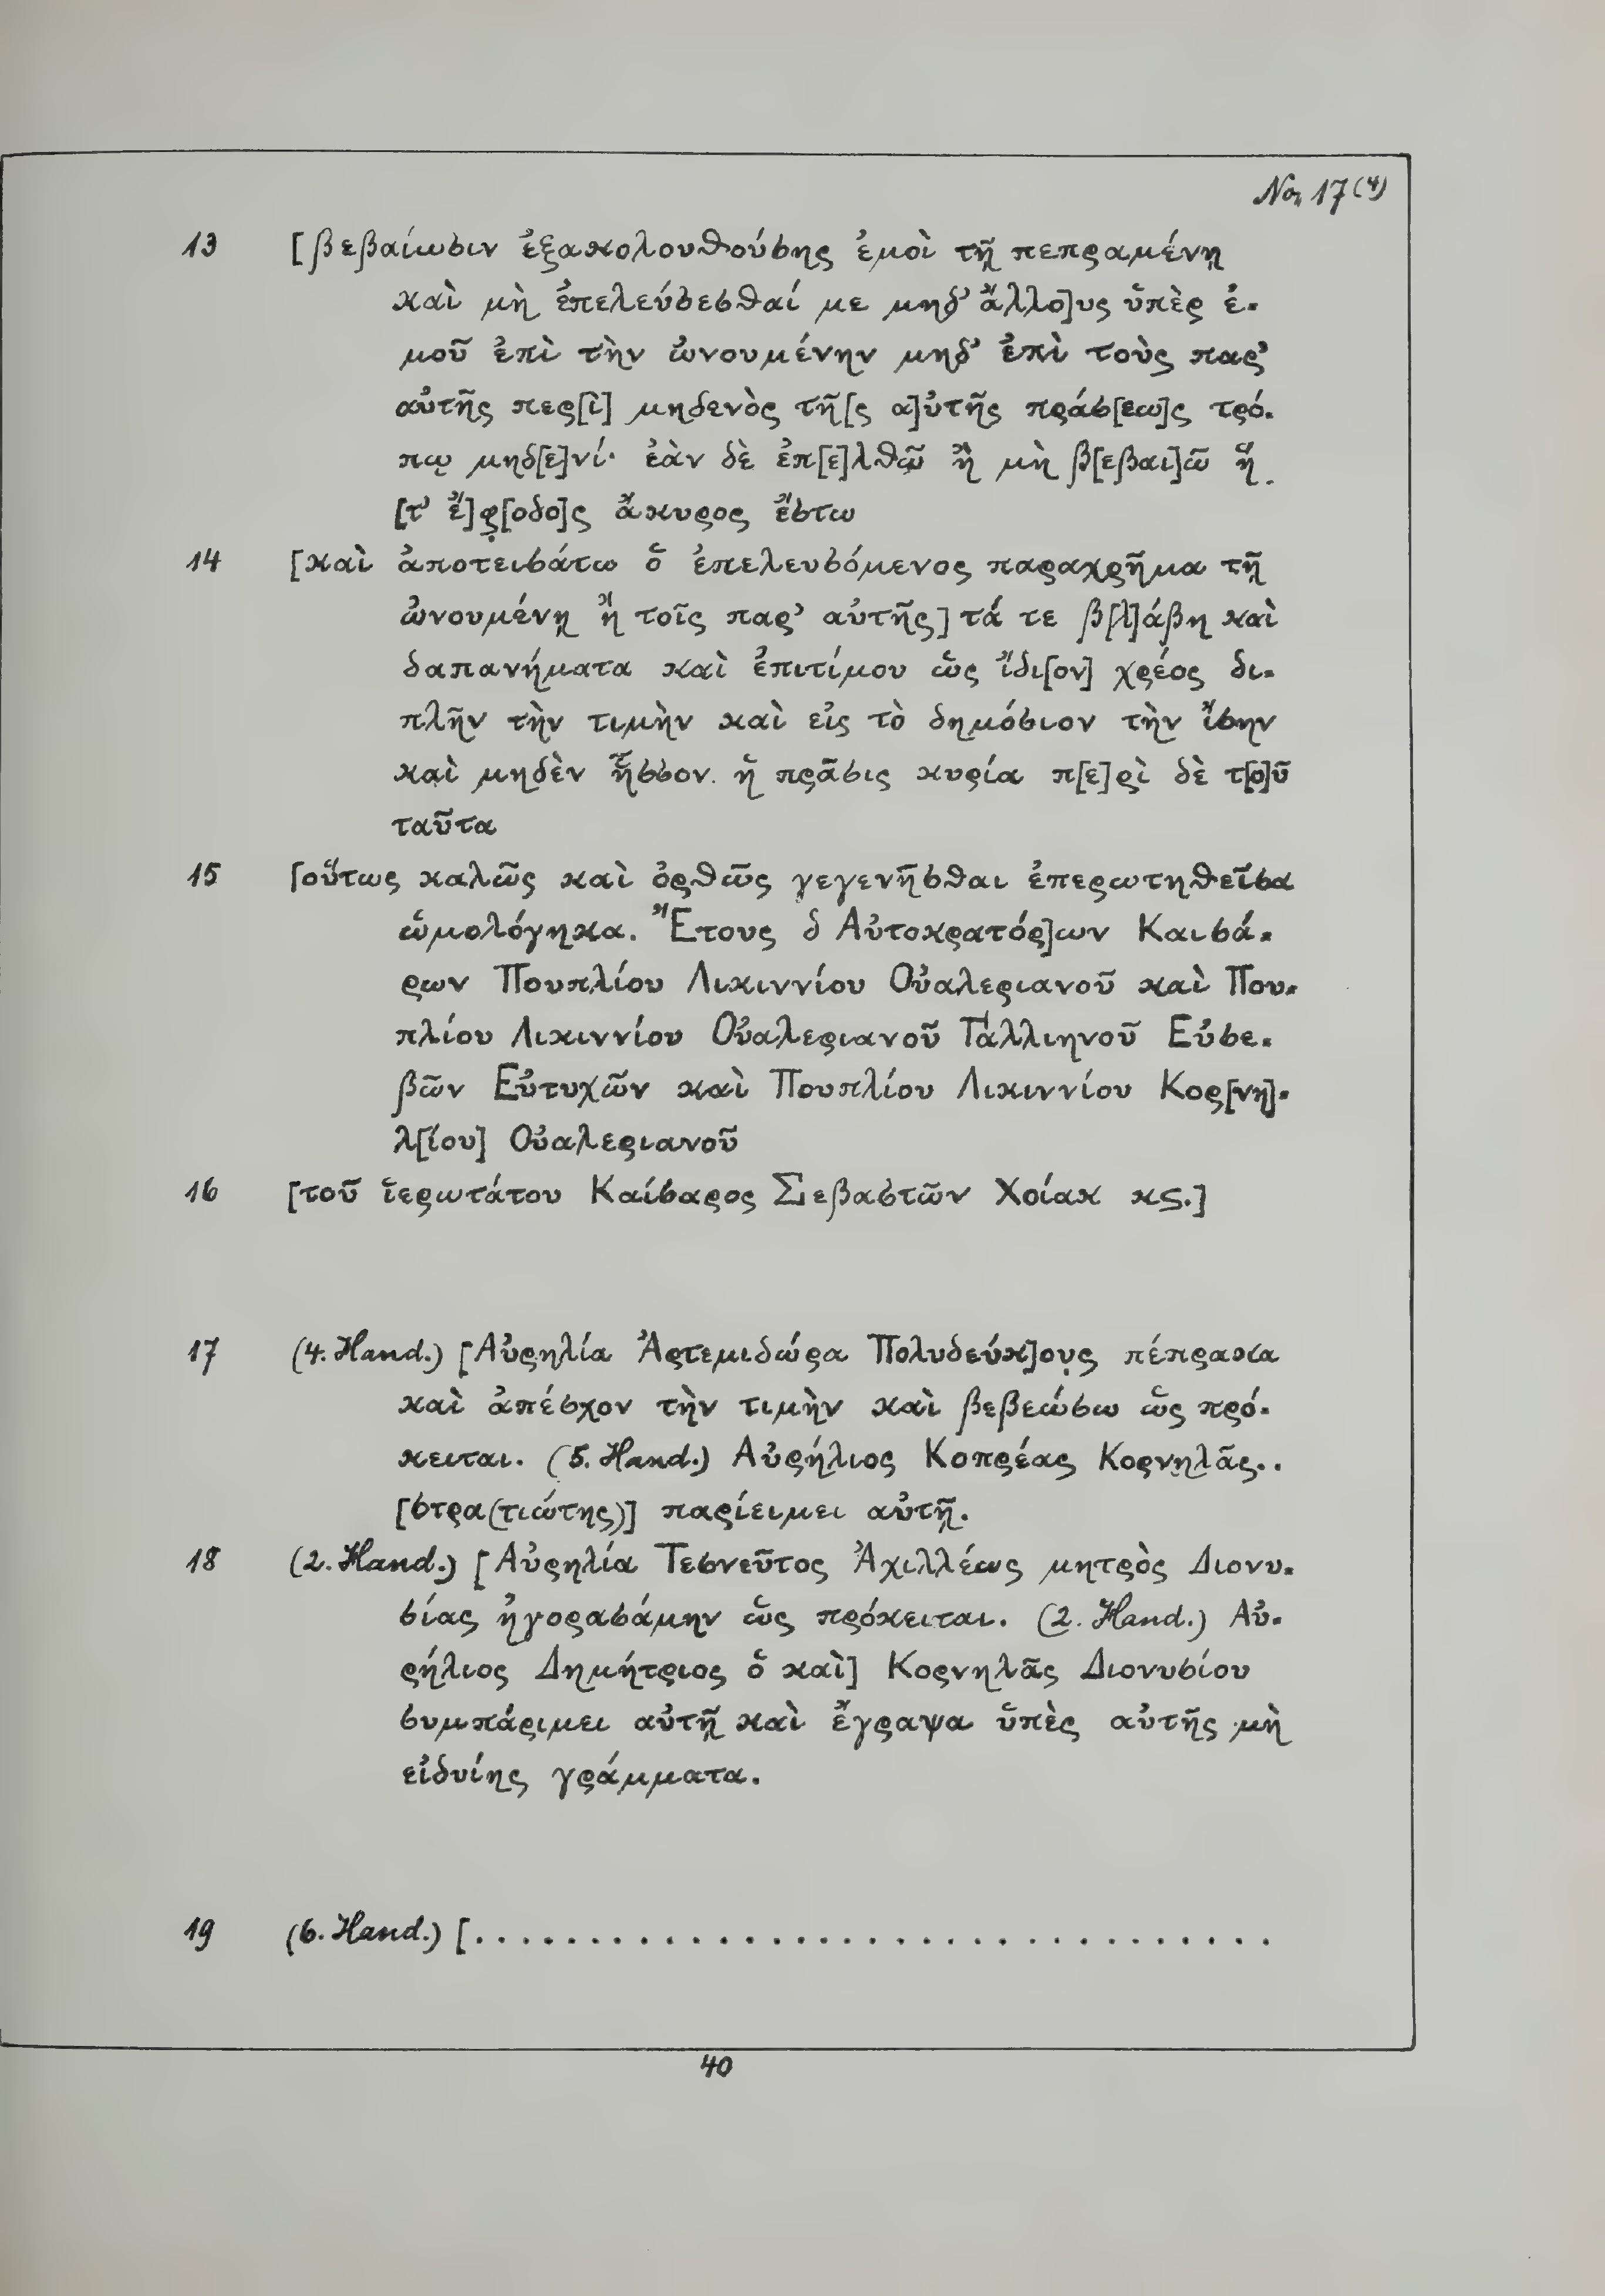 No. 17 (4)
13 [βεβαίωσιν ἐξακολουθούσης ἐμοὶ τῇ πεπραμένῃ
καὶ μὴ ἐπελεύσεσθαί με μηδ' ἄλλο]υς ὑπὲρ ἐ-
μοῦ ἐπὶ τὴν ὠνουμένην μηδ' ἐπὶ τοὺς παρ'
αὐτῆς περ[ὶ] μηδενὸς τῆ[ς α]ὐτῆς πράσ[εω]ς τρό-
πῳ μηδ[ε]νί· ἐὰν δὲ ἐπ[ε]λθῶ ἢ μὴ β[εβαι]ῶ ἥ
[τ' ἔ]φ̣[οδο]ς ἄκυρος ἔστω
14 [καὶ ἀποτεισάτω ὁ ἐπελευσόμενος παραχρῆμα τῇ
ὠνουμένῃ ἢ τοῖς παρ' αὐτῆς] τά τε β[λ]άβη καὶ
δαπανήματα καὶ ἐπιτίμου ὡς ἴδι[ον] χρέος δι-
πλῆν τὴν τιμὴν καὶ εἰς τὸ δημόσιον τὴν ἴσην
καὶ μηδὲν ἧσσον. ἡ πρᾶσις κυρία π[ε]ρὶ δὲ τ[ο]ῦ
ταῦτα
15 [οὕτως καλῶς καὶ ὀρθῶς γεγενῆσθαι ἐπερωτηθεῖσα
ὡμολόγηκα. Ἔτους δ Αὐτοκρατόρ]ων Καισά-
ρων Πουπλίου Λικιννίου Οὐαλεριανοῦ καὶ Που-
πλίου Λικιννίου Οὐαλεριανοῦ Γαλλιηνοῦ Εὐσε-
βῶν Εὐτυχῶν καὶ Πουπλίου Λικιννίου Κορ[νη]-
λ[ίου] Οὐαλεριανοῦ
16 [τοῦ ἱερωτάτου Καίσαρος Σεβαστῶν Χοίακ κϛ.]
17 (4. Hand.) [Αὐρηλία Ἀρτεμιδώρα Πολυδεύκ]ου̣ς πέπρακα
καὶ ἀπέσχον τὴν τιμὴν καὶ βεβεώσω ὡς πρό-
κειται. (5. Hand.) Αὐρήλιος Κοπρέας Κορνηλᾶς..
[στρα(τιώτης)] παρίειμει αὐτῇ.
18 (2. Hand.) [Αὐρηλία Τεσνεῦτος Ἀχιλλέως μητρὸς Διονυ-
σίας ἠγορασάμην ὡς πρόκειται. (2. Hand.) Αὐ-
ρήλιος Δημήτριος ὁ καὶ] Κορνηλᾶς Διονυσίου
συμπάριμει αὐτῇ καὶ ἔγραψα ὑπὲρ αὐτῆς μὴ
εἰδυίης γράμματα.
19 (6. Hand.) [. . . . . . . . . . . . . . . . . . . . . . . . . . . . . . . . . .
40